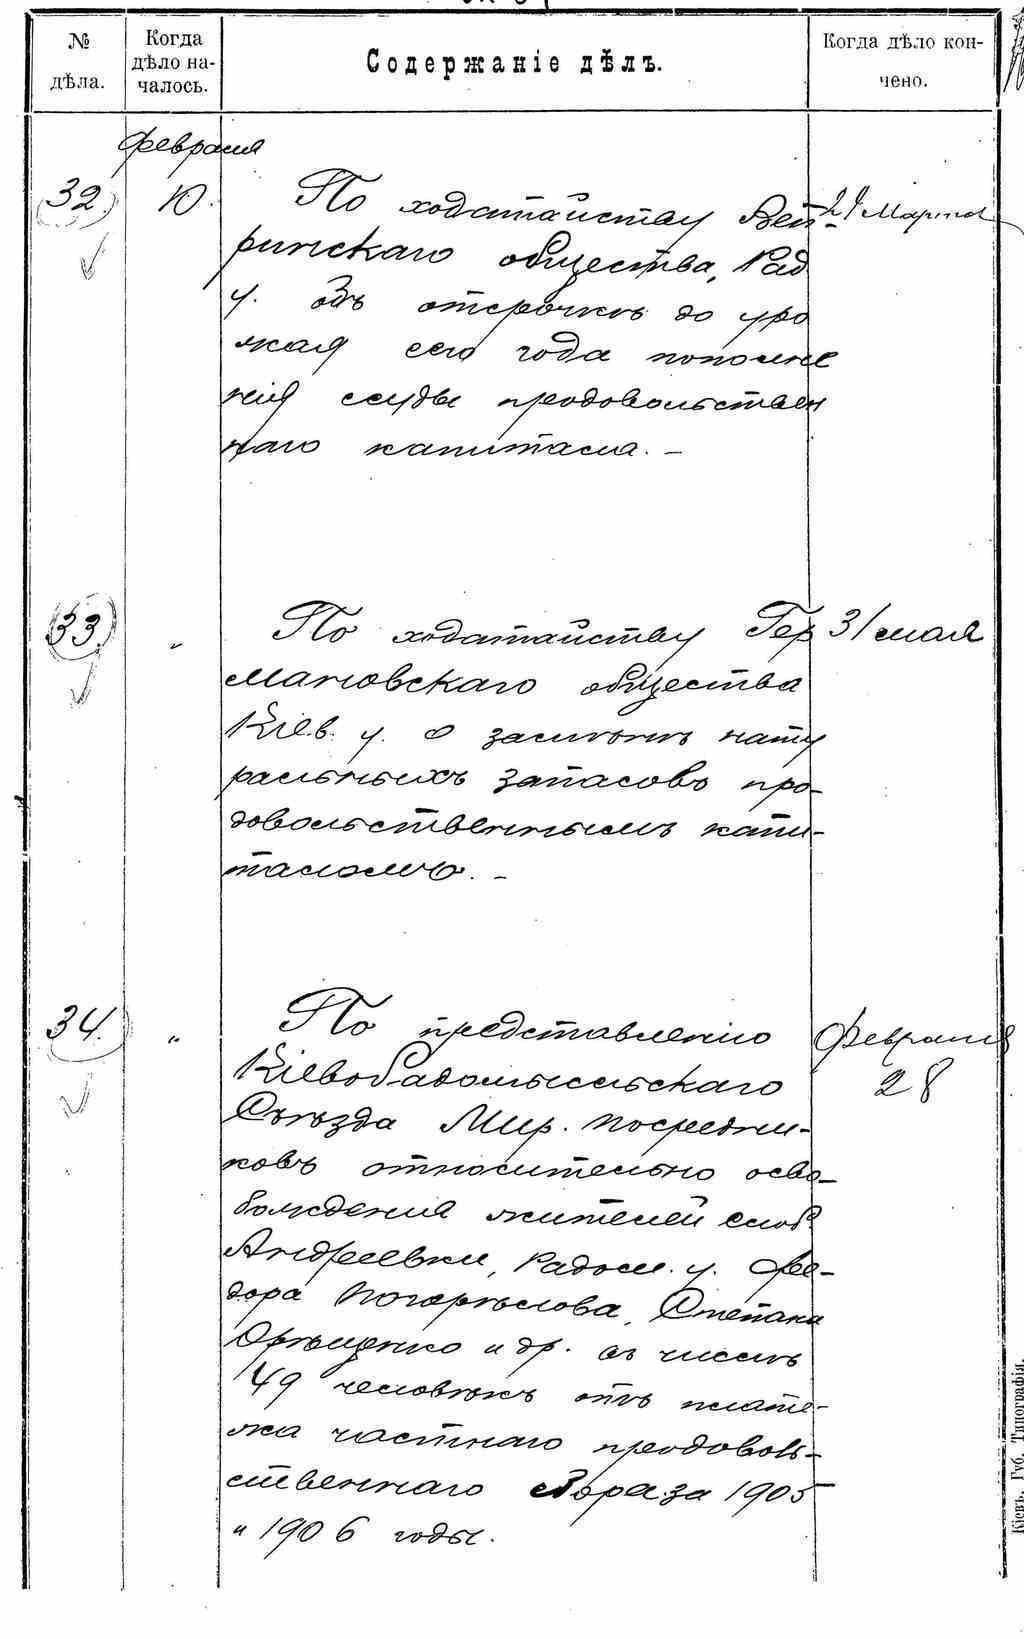 № дѣла.
Когда дѣло на-
чалось.
Содержаніе дѣлъ.
Когда дѣло кон-
чено.
февраля
32
10.
По ходатайству Веп-
ринскаго общества, Рад
у. объ отсрочкѣ до уро
жая сего года пополне
нія ссуды продовольствен
наго капитала. –
Марта
33.
„
По ходатайству Гер
мановскаго общества
Кіев. у. о замѣнѣ нату
ральныхъ запасовъ про-
довольственнымъ капи-
таломъ. –
31 мая
34.
„
По представленію
Кіево Радомысльскаго
Съѣзда Мир. Посредни-
ковъ относительно осво-
божденія жителей слоб.
Андреевки, Радом. у. Фе-
дора Погорѣлова, Степана
Орѣщенко и др. въ числѣ
49 человѣкъ отъ плате-
жа частнаго продоволь-
ственнаго сбора за 1905
и 1906 годы.
Февраля
28
Кіевъ. Губ. Типографія.